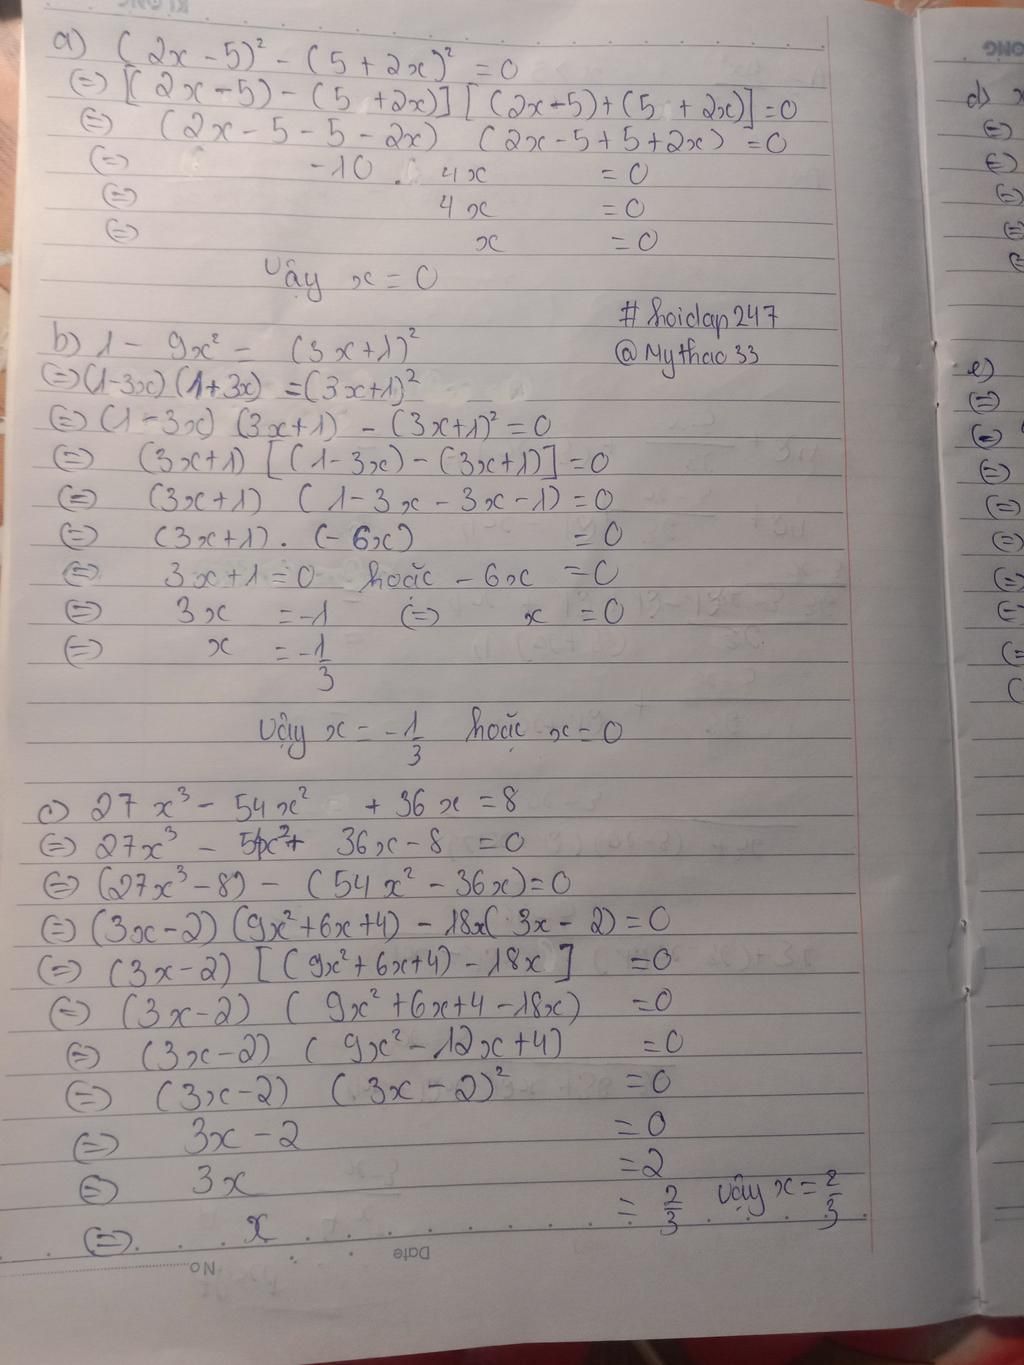 a) (2x - 5)² - (5 + 2x)² = 0
(=) [(2x - 5) - (5 + 2x)] [(2x - 5) + (5 + 2x)] = 0
(=) (2x - 5 - 5 - 2x) (2x - 5 + 5 + 2x) = 0
(=) -10 . 4x = 0
(=) 4x = 0
(=) x = 0
Vậy x = 0
#hoidap247
@Mythao33
b) 1 - 9x² = (3x+1)²
(=) (1-3x) (1+3x) = (3x+1)²
(=) (1-3x) (3x+1) - (3x+1)² = 0
(=) (3x+1) [(1-3x) - (3x+1)] = 0
(=) (3x+1) (1 - 3x - 3x - 1) = 0
(=) (3x+1) . (-6x) = 0
(=) 3x+1 = 0 hoặc -6x = 0
(=) 3x = -1 (=) x = 0
(=) x = -1/3
Vậy x = -1/3 hoặc x = 0
c) 27x³ - 54x² + 36x = 8
(=) 27x³ - 54x² + 36x - 8 = 0
(=) (27x³ - 8) - (54x² - 36x) = 0
(=) (3x-2) (9x²+6x+4) - 18x(3x - 2) = 0
(=) (3x-2) [(9x²+6x+4) - 18x] = 0
(=) (3x-2) (9x²+6x+4-18x) = 0
(=) (3x-2) (9x² - 12x+4) = 0
(=) (3x-2) (3x-2)² = 0
(=) 3x - 2 = 0
(=) 3x = 2
(=) x = 2/3 Vậy x = 2/3
Date
No
d) x
(=)
(=)
(=)
(=)
(=)
e)
(=)
(=)
(=)
(=)
(=)
(=)
(=)
(=)